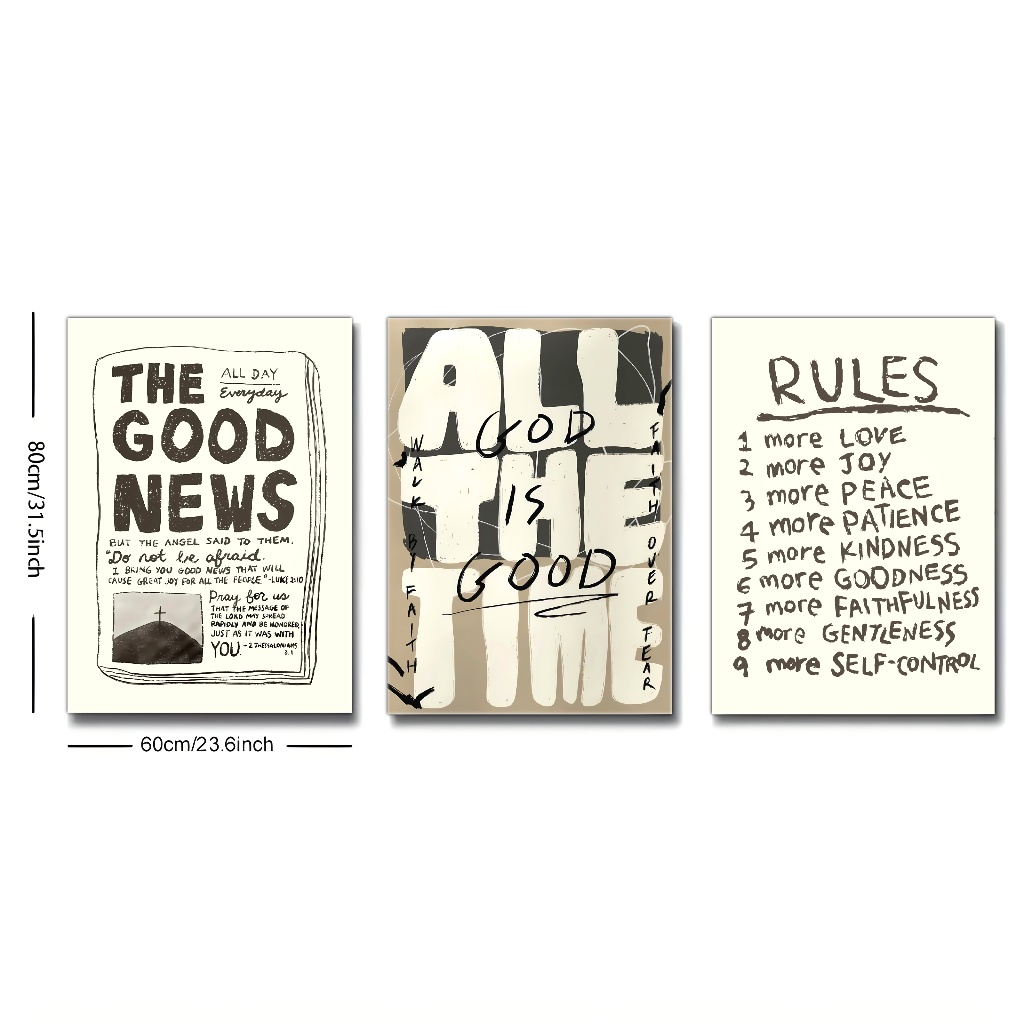 80cm/31.5inch
THE
ALL DAY
Everyday
GOOD
NEWS
BUT THE ANGEL SAID TO THEM,
"Do not be afraid.
I BRING YOU GOOD NEWS THAT WILL
CAUSE GREAT JOY FOR ALL THE PEOPLE" -LUKE 2:10
Pray for us
THAT THE MESSAGE OF
THE LORD MAY SPREAD
RAPIDLY AND BE HONORED,
JUST AS IT WAS WITH
YOU. -2 THESSALONIANS
3:1
60cm/23.6inch
ALL
THE
TIME
GOD
IS
GOOD
WALK BY FAITH
FAITH OVER FEAR
RULES
1 more LOVE
2 more JOY
3 more PEACE
4 more PATIENCE
5 more KINDNESS
6 more GOODNESS
7 more FAITHFULNESS
8 more GENTLENESS
9 more SELF-CONTROL